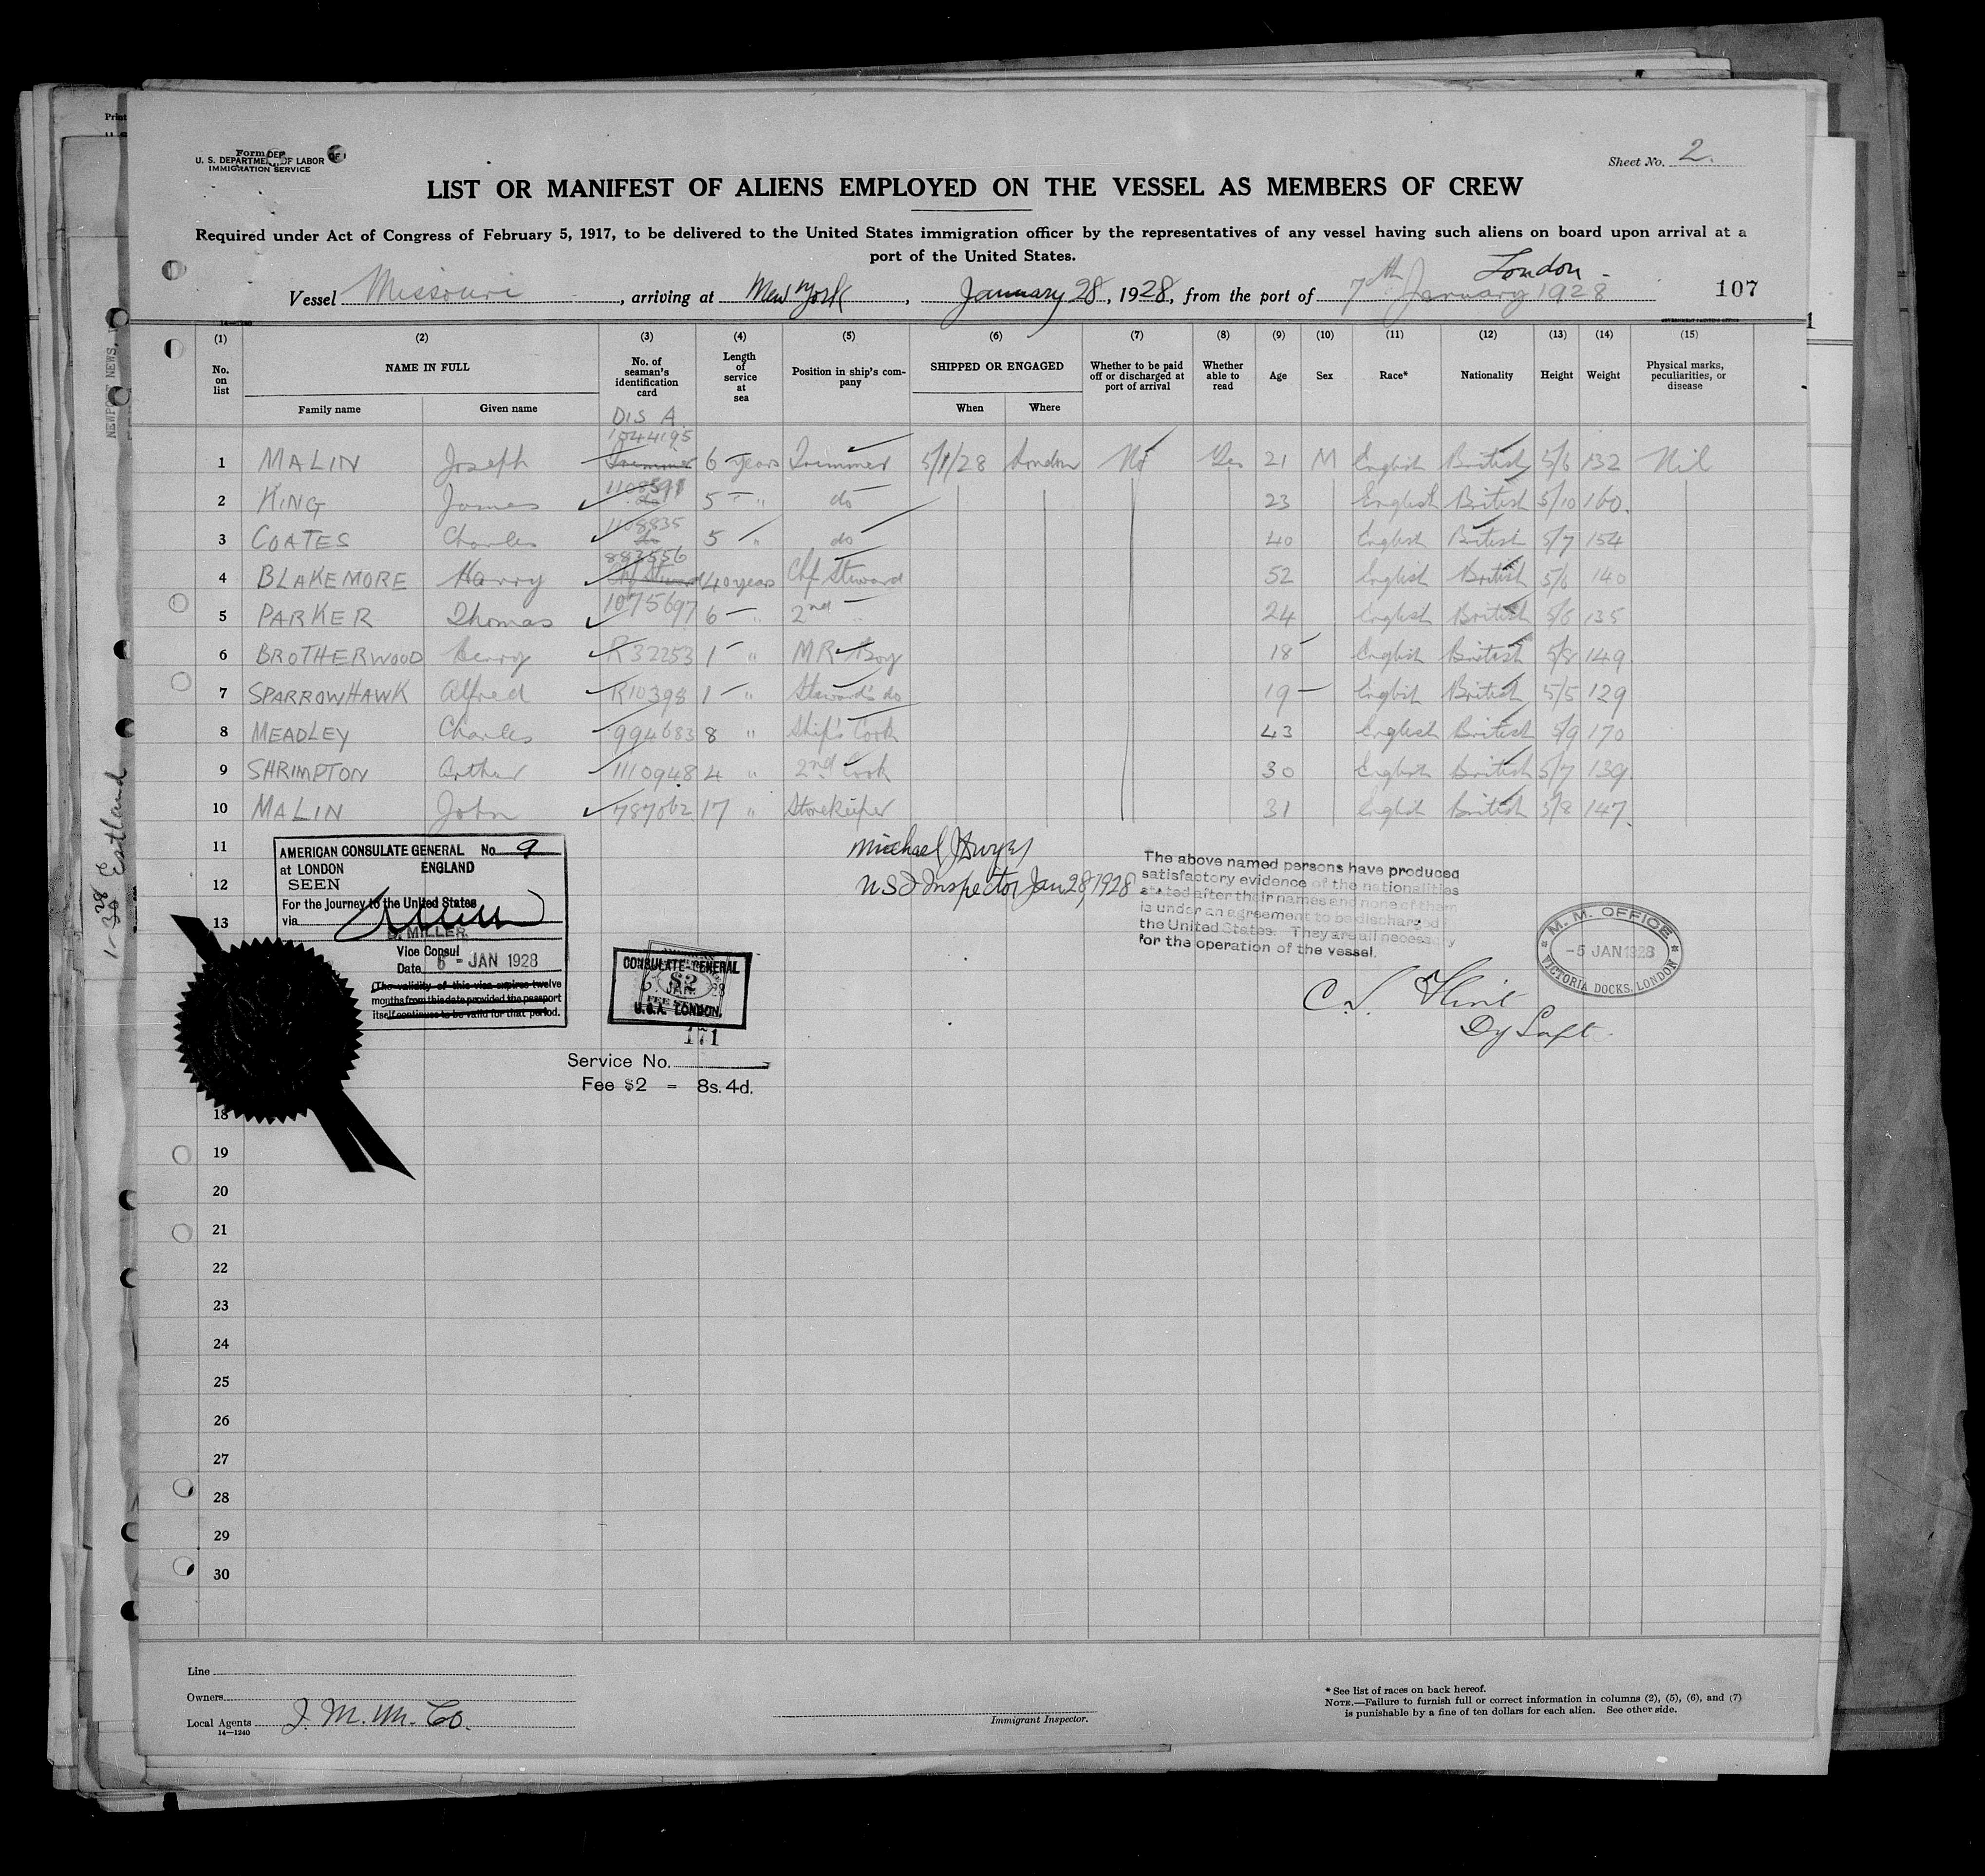 Form
U. S. DEPARTMENT OF LABOR
IMMIGRATION SERVICE
Sheet No. 2.
LIST OR MANIFEST OF ALIENS EMPLOYED ON THE VESSEL AS MEMBERS OF CREW
Required under Act of Congress of February 5, 1917, to be delivered to the United States immigration officer by the representatives of any vessel having such aliens on board upon arrival at a
port of the United States.
Vessel Missouri, arriving at New York, January 28, 1928, from the port of London 7th January 1928 107
(1) (2) (3) (4) (5) (6) (7) (8) (9) (10) (11) (12) (13) (14) (15)
No. on list NAME IN FULL Family name Given name No. of seaman's identification card Length of service at sea Position in ship's company SHIPPED OR ENGAGED When Where Whether to be paid off or discharged at port of arrival Whether able to read Age Sex Race* Nationality Height Weight Physical marks, peculiarities, or disease
DIS A
1 MALIN Joseph 1044195 Trimmer 6 years Trimmer 5/1/28 London No Yes 21 M English British 5/6 132 Nil
2 KING James do 5 " do 23 English British 5/10 160.
3 COATES Charles 1108835 do 5 " do 40 English British 5/7 154
4 BLAKEMORE Harry 883556 Chf Steward 40 years Chf Steward 52 English British 5/6 140
5 PARKER Thomas 1075697 6 " 2nd " 24 English British 5/6 135
6 BROTHERWOOD R32253 1 " MR Boy 18 English British 5/8 149.
7 SPARROWHAWK Alfred R10398 1 " Steward's do 19 English British 5/5 129
8 MEADLEY Charles 994683 8 " Ship's Cook 43 English British 5/9 170
9 SHRIMPTON Arthur 1110948 4 " 2nd Cook 30 English British 5/7 139.
10 MALIN John 787062 17 " Storekeeper 31 English British 5/8 147.
11
12
13
18
19
20
21
22
23
24
25
26
27
28
29
30
AMERICAN CONSULATE GENERAL No. 9
at LONDON ENGLAND
SEEN
For the journey to the United States
via
MILLER
Vice Consul
Date 6 - JAN 1928
(The validity of this visa expires twelve
months from this date provided the passport
itself continues to be valid for that period.
CONSULATE-GENERAL
$2
U.S.A. LONDON.
171
Service No.
Fee $2 = 8s. 4d.
Michael Dwyer
U S I Inspector Jan 28, 1928
The above named persons have produced
satisfactory evidence of the nationalities
stated after their names and none of them
is under an agreement to be discharged
the United States. They are all necessary
for the operation of the vessel.
M. M. OFFICE
-5 JAN 1928
VICTORIA DOCKS, LONDON
Dy Supt.
1-30 Estland
NEWPORT NEWS,
Line
Owners
Local Agents I. M. M. Co.
14—1240
Immigrant Inspector.
* See list of races on back hereof.
NOTE.—Failure to furnish full or correct information in columns (2), (5), (6), and (7)
is punishable by a fine of ten dollars for each alien. See other side.